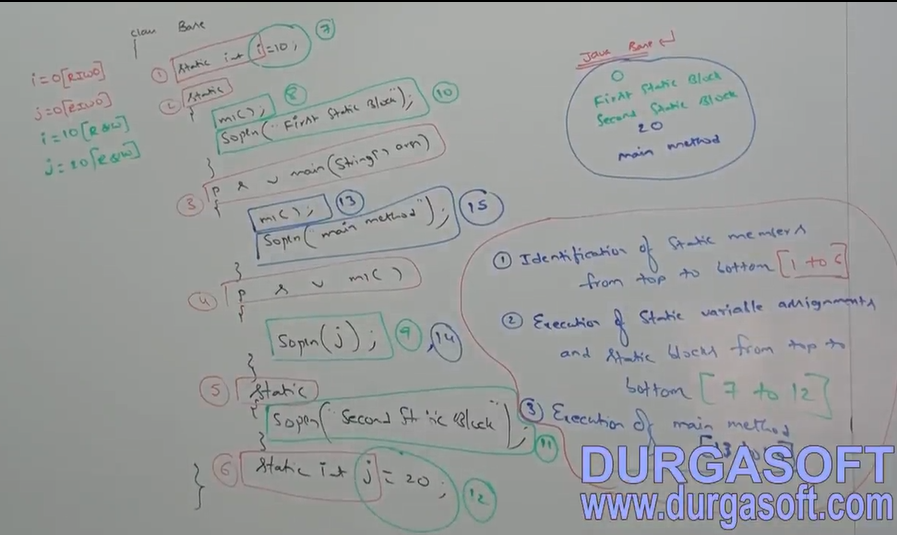 class Base
① static int i=10; ⑦
② static
{
m1(); ⑧
Sopln("First Static Block"); ⑩
}
③ p s v main(String[] args)
{
m1(); ⑬
Sopln("main method"); ⑮
}
④ p s v m1()
{
Sopln(j); ⑨, ⑭
}
⑤ static
{
Sopln("Second Static Block"); ⑪
}
⑥ static int j=20; ⑫
}
i=0[RIWO]
j=0[RIWO]
i=10[R&W]
j=20[R&W]
Java Base ↵
0
First Static Block
Second Static Block
20
main method
① Identification of static members
from top to bottom [1 to 6]
② Execution of static variable assignments
and static blocks from top to
bottom [7 to 12]
③ Execution of main method
DURGASOFT
www.durgasoft.com